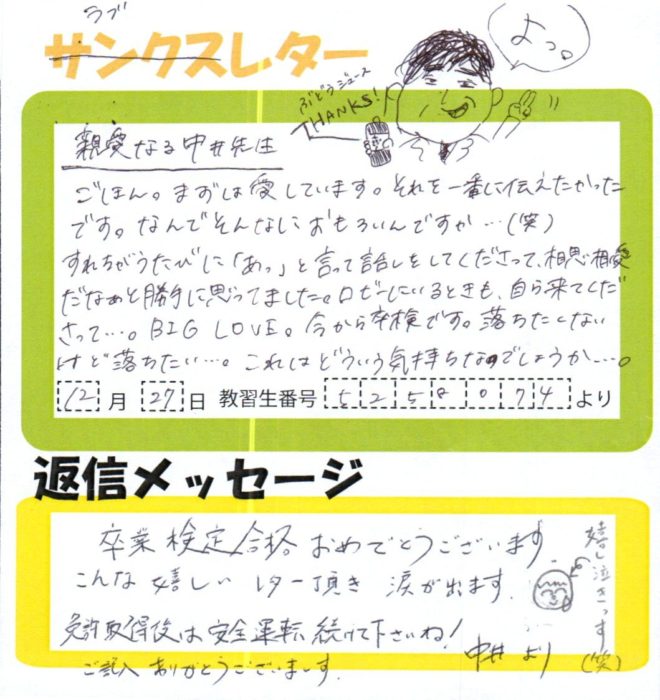 ラブ
サンクスレター
よっ。
ぶどうジュース
THANKS!
親愛なる中井先生
ごほん。まずは愛しています。それを一番に伝えたかった
です。なんでそんなにおもろいんですか…(笑)
すれちがうたびに「あっ」と言って話しをしてくださって、相思相愛
だなぁと勝手に思ってました。ロビーにいるときも、自ら来てくだ
さって…。BIG LOVE。今から卒検です。落ちたくない
けど落ちたい…。これはどういう気持ちなのでしょうか…。
12月27日 教習生番号 52580074より
返信メッセージ
卒業検定合格。おめでとうございます
こんな嬉しいレター頂き 涙が出ます。
免許取得後は安全運転続けて下さいね!
ご記入ありがとうございます。
中井より
嬉し泣きっす(笑)